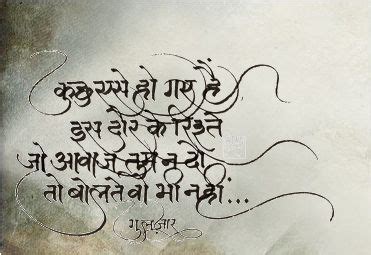 कुछ एसे हो गए हैं
इस दौर के रिश्ते
जो आवाज तुम न दो
तो बोलते वो भी नहीं...
गुलज़ार